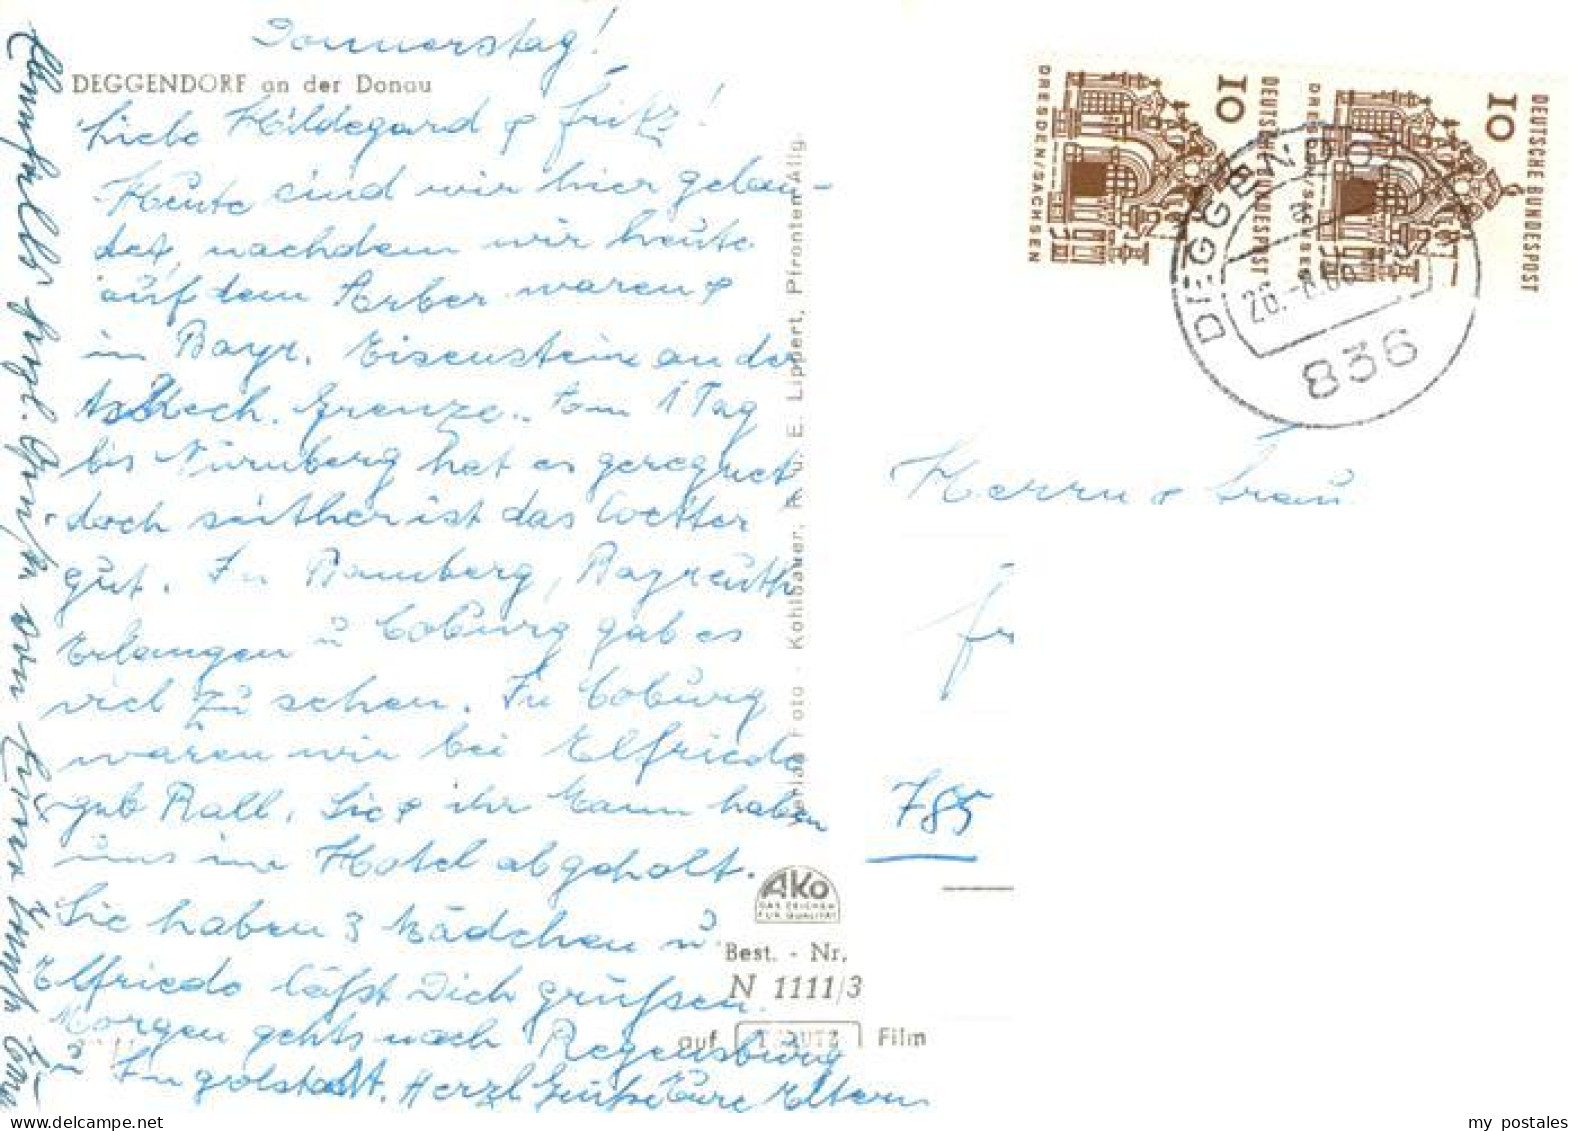 Donnerstag!
DEGGENDORF an der Donau
Liebe Hildegard & Fritz!
Heute sind wir hier gelan-
det, nachdem wir heute
auf dem Arber waren &
in Bayr. Eisenstein an der
Tschech. Grenze. Am 1 Tag
bis Nürnberg hat es geregnet,
doch seither ist das Wetter
gut. In Bamberg, Bayreuth
Erlangen u Coburg gab es
viel zu sehen. In Coburg
waren wir bei Elfriede
geb Rall. Sie & ihr Mann haben
uns im Hotel abgeholt.
Sie haben 3 Mädchen u.
Elfriede läßt Dich grüßen.
Morgen gehts nach Regensburg
u Ingolstadt. Herzl Grüße Eure Eltern
Ebenfalls herzl. Grüße von
Verlag Foto - Kohlbauer; R. u. E. Lippert, Pfronten Allg.
AKO
DAS ZEICHEN
FÜR QUALITÄT
Best. - Nr.
N 1111/3
auf PERUTZ Film
10
DEUTSCHE BUNDESPOST
DRESDEN/SACHSEN
10
DEUTSCHE BUNDESPOST
DRESDEN/SACHSEN
DEGGENDORF
836
Herrn & Frau
Fr
785
my postales